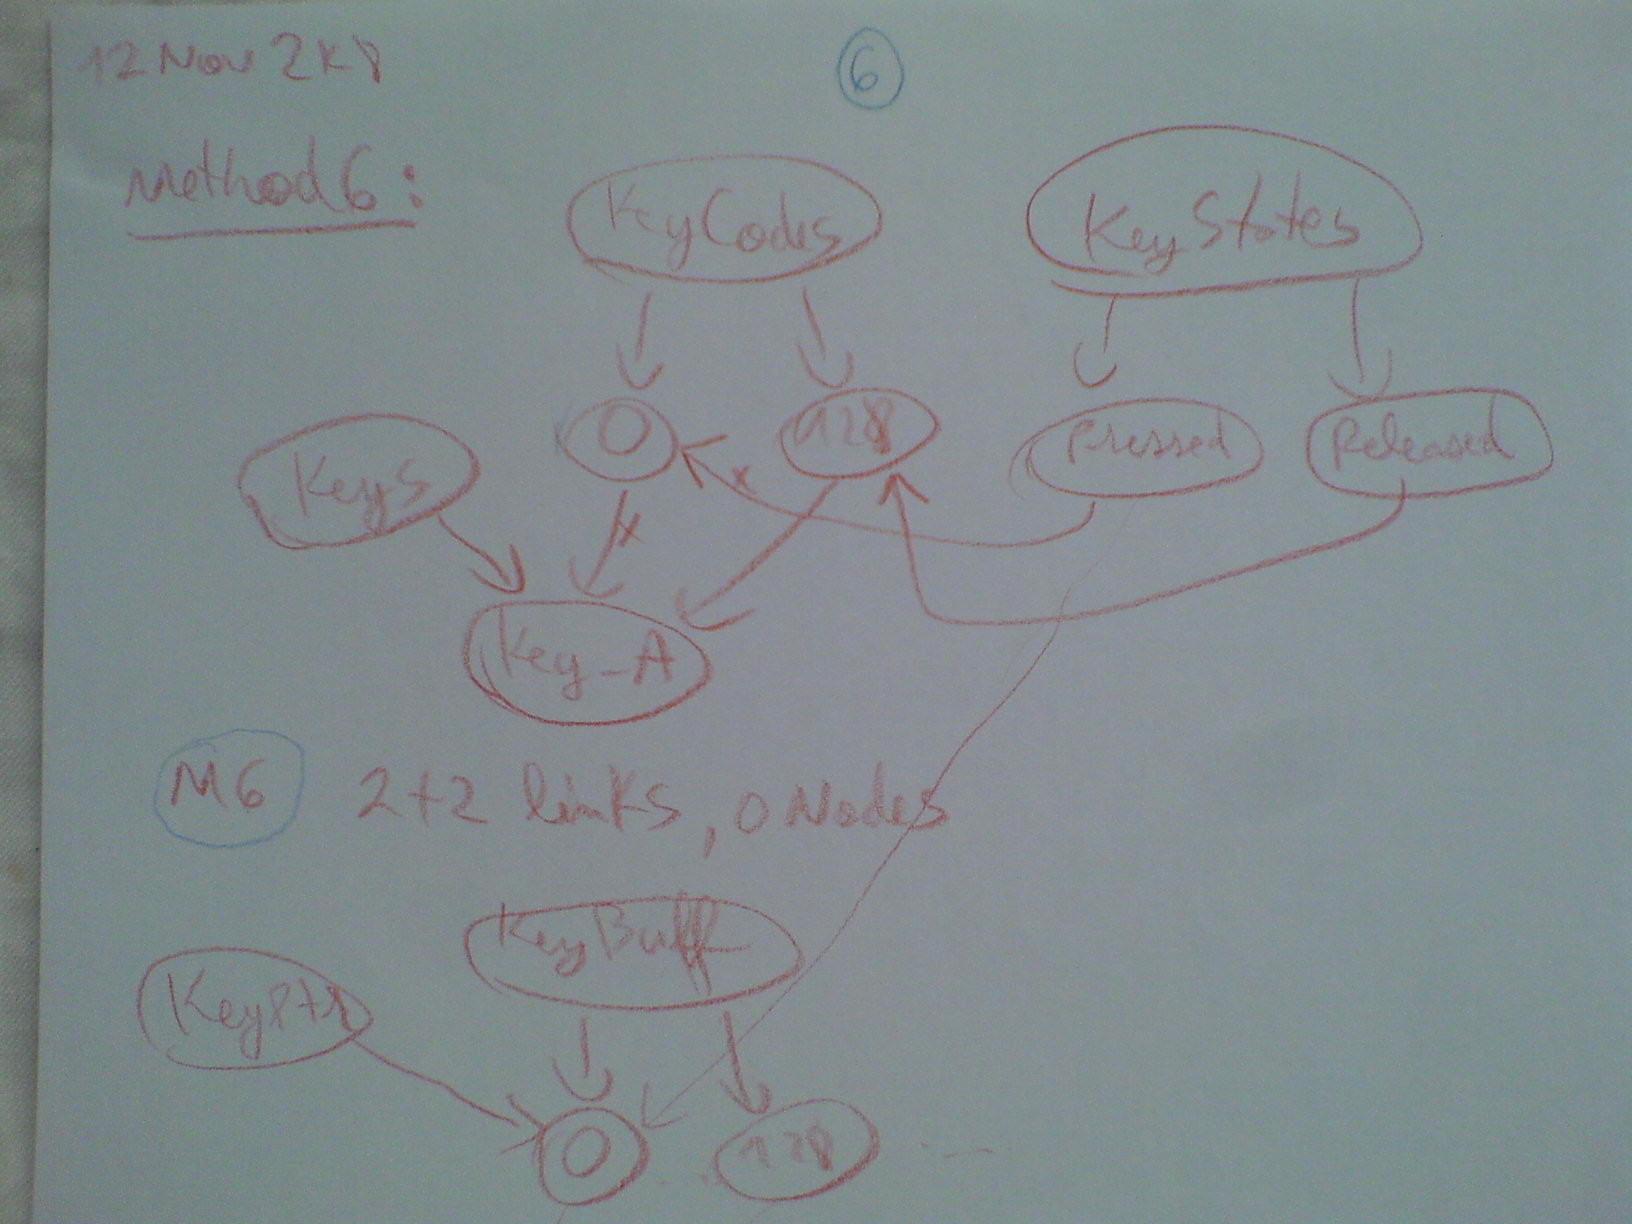 12 Nov 2K8
6
Method 6:
KeyCodes
KeyStates
0
128
Pressed
Released
Keys
x
x
Key_A
M6
2+2 links, 0 Nodes
KeyBuff
KeyPtr
0
..
128
...